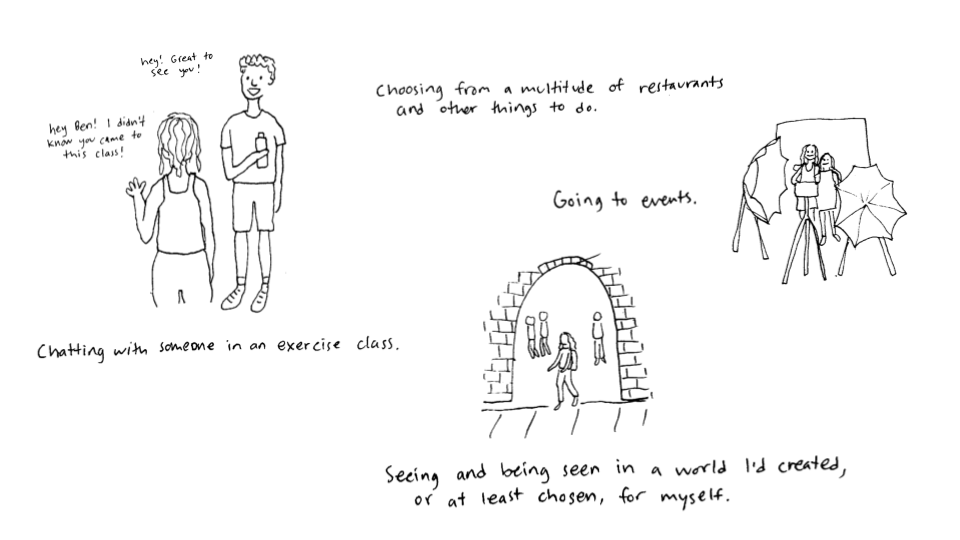 hey! Great to
see you!
hey Ben! I didn't
know you came to
this class!
Chatting with someone in an exercise class.
Choosing from a multitude of restaurants
and other things to do.
Going to events.
Seeing and being seen in a world I'd created,
or at least chosen, for myself.